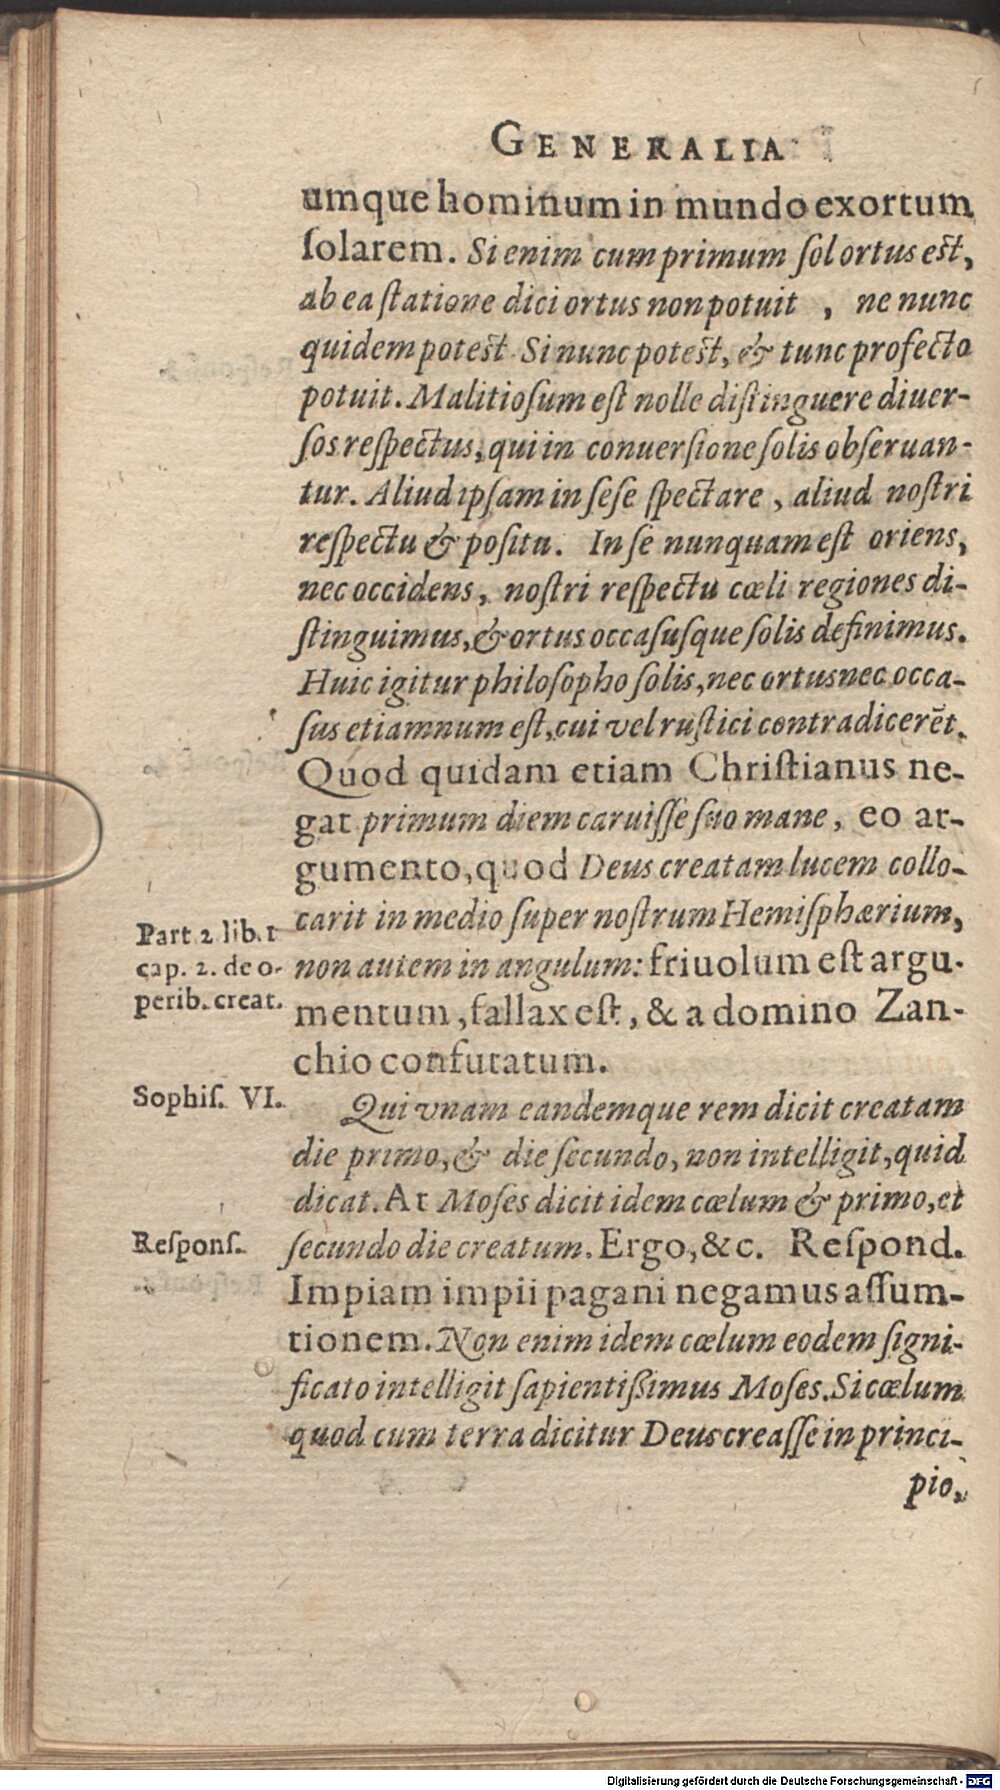 GENERALIA
umque hominum in mundo exortum
ſolarem. Si enim cum primum ſol ortus eſt,
ab ea ſtatione dici ortus non potuit , ne nunc
quidem poteſt. Si nunc poteſt, & tunc profecto
potuit. Malitioſum eſt nolle diſtinguere diuer-
ſos reſpectus, qui in conuerſione ſolis obſeruan-
tur. Aliud ipſam in ſeſe ſpectare , aliud noſtri
reſpectu & poſitu. In ſe nunquam eſt oriens,
nec occidens, noſtri reſpectu cœli regiones di-
ſtinguimus, & ortus occaſusque ſolis definimus.
Huic igitur philoſopho ſolis, nec ortus nec occa-
ſus etiamnum eſt, cui vel ruſtici contradicerēt.
Quod quidam etiam Chriſtianus ne-
gat primum diem caruiſſe ſuo mane, eo ar-
gumento, quod Deus creatam lucem collo-
carit in medio ſuper noſtrum Hemiſphærium,
Part 2 lib. 1
cap. 2. de o-
perib. creat.
non autem in angulum: friuolum eſt argu-
mentum, fallax eſt, & a domino Zan-
chio confutatum.
Sophiſ. VI.
Qui vnam eandemque rem dicit creatam
die primo, & die ſecundo, non intelligit, quid
dicat. At Moſes dicit idem cœlum & primo, et
Reſponſ.
ſecundo die creatum. Ergo, &c. Reſpond.
Impiam impii pagani negamus aſſum-
tionem. Non enim idem cœlum eodem ſigni-
ficato intelligit ſapientißimus Moſes. Si cœlum
quod cum terra dicitur Deus creaſſe in princi-
pio,
Digitalisierung gefördert durch die Deutsche Forschungsgemeinschaft - DFG